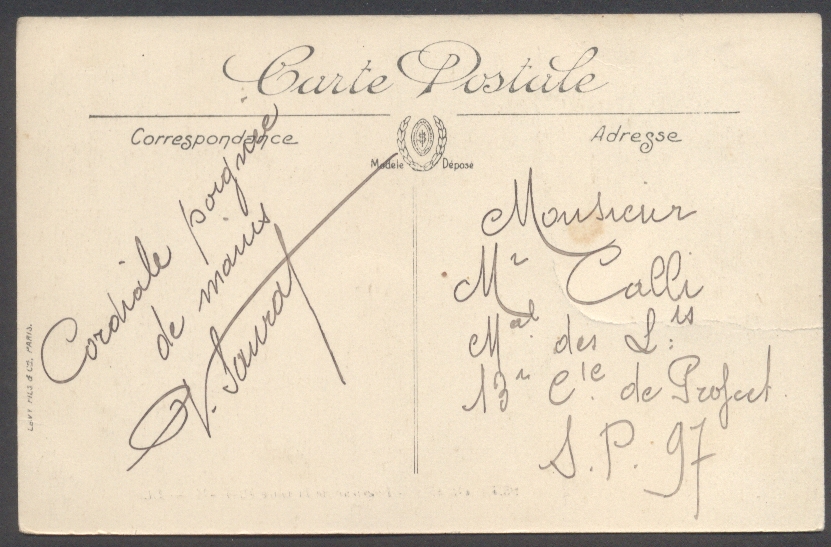 Carte Postale
Correspondance
Adresse
Modèle Déposé
Cordiale poignée
de mains
Monsieur
Mr Calli
Mal des Lis
13e Cie de Project.
S.P. 97
LEVY FILS & Cie, PARIS.